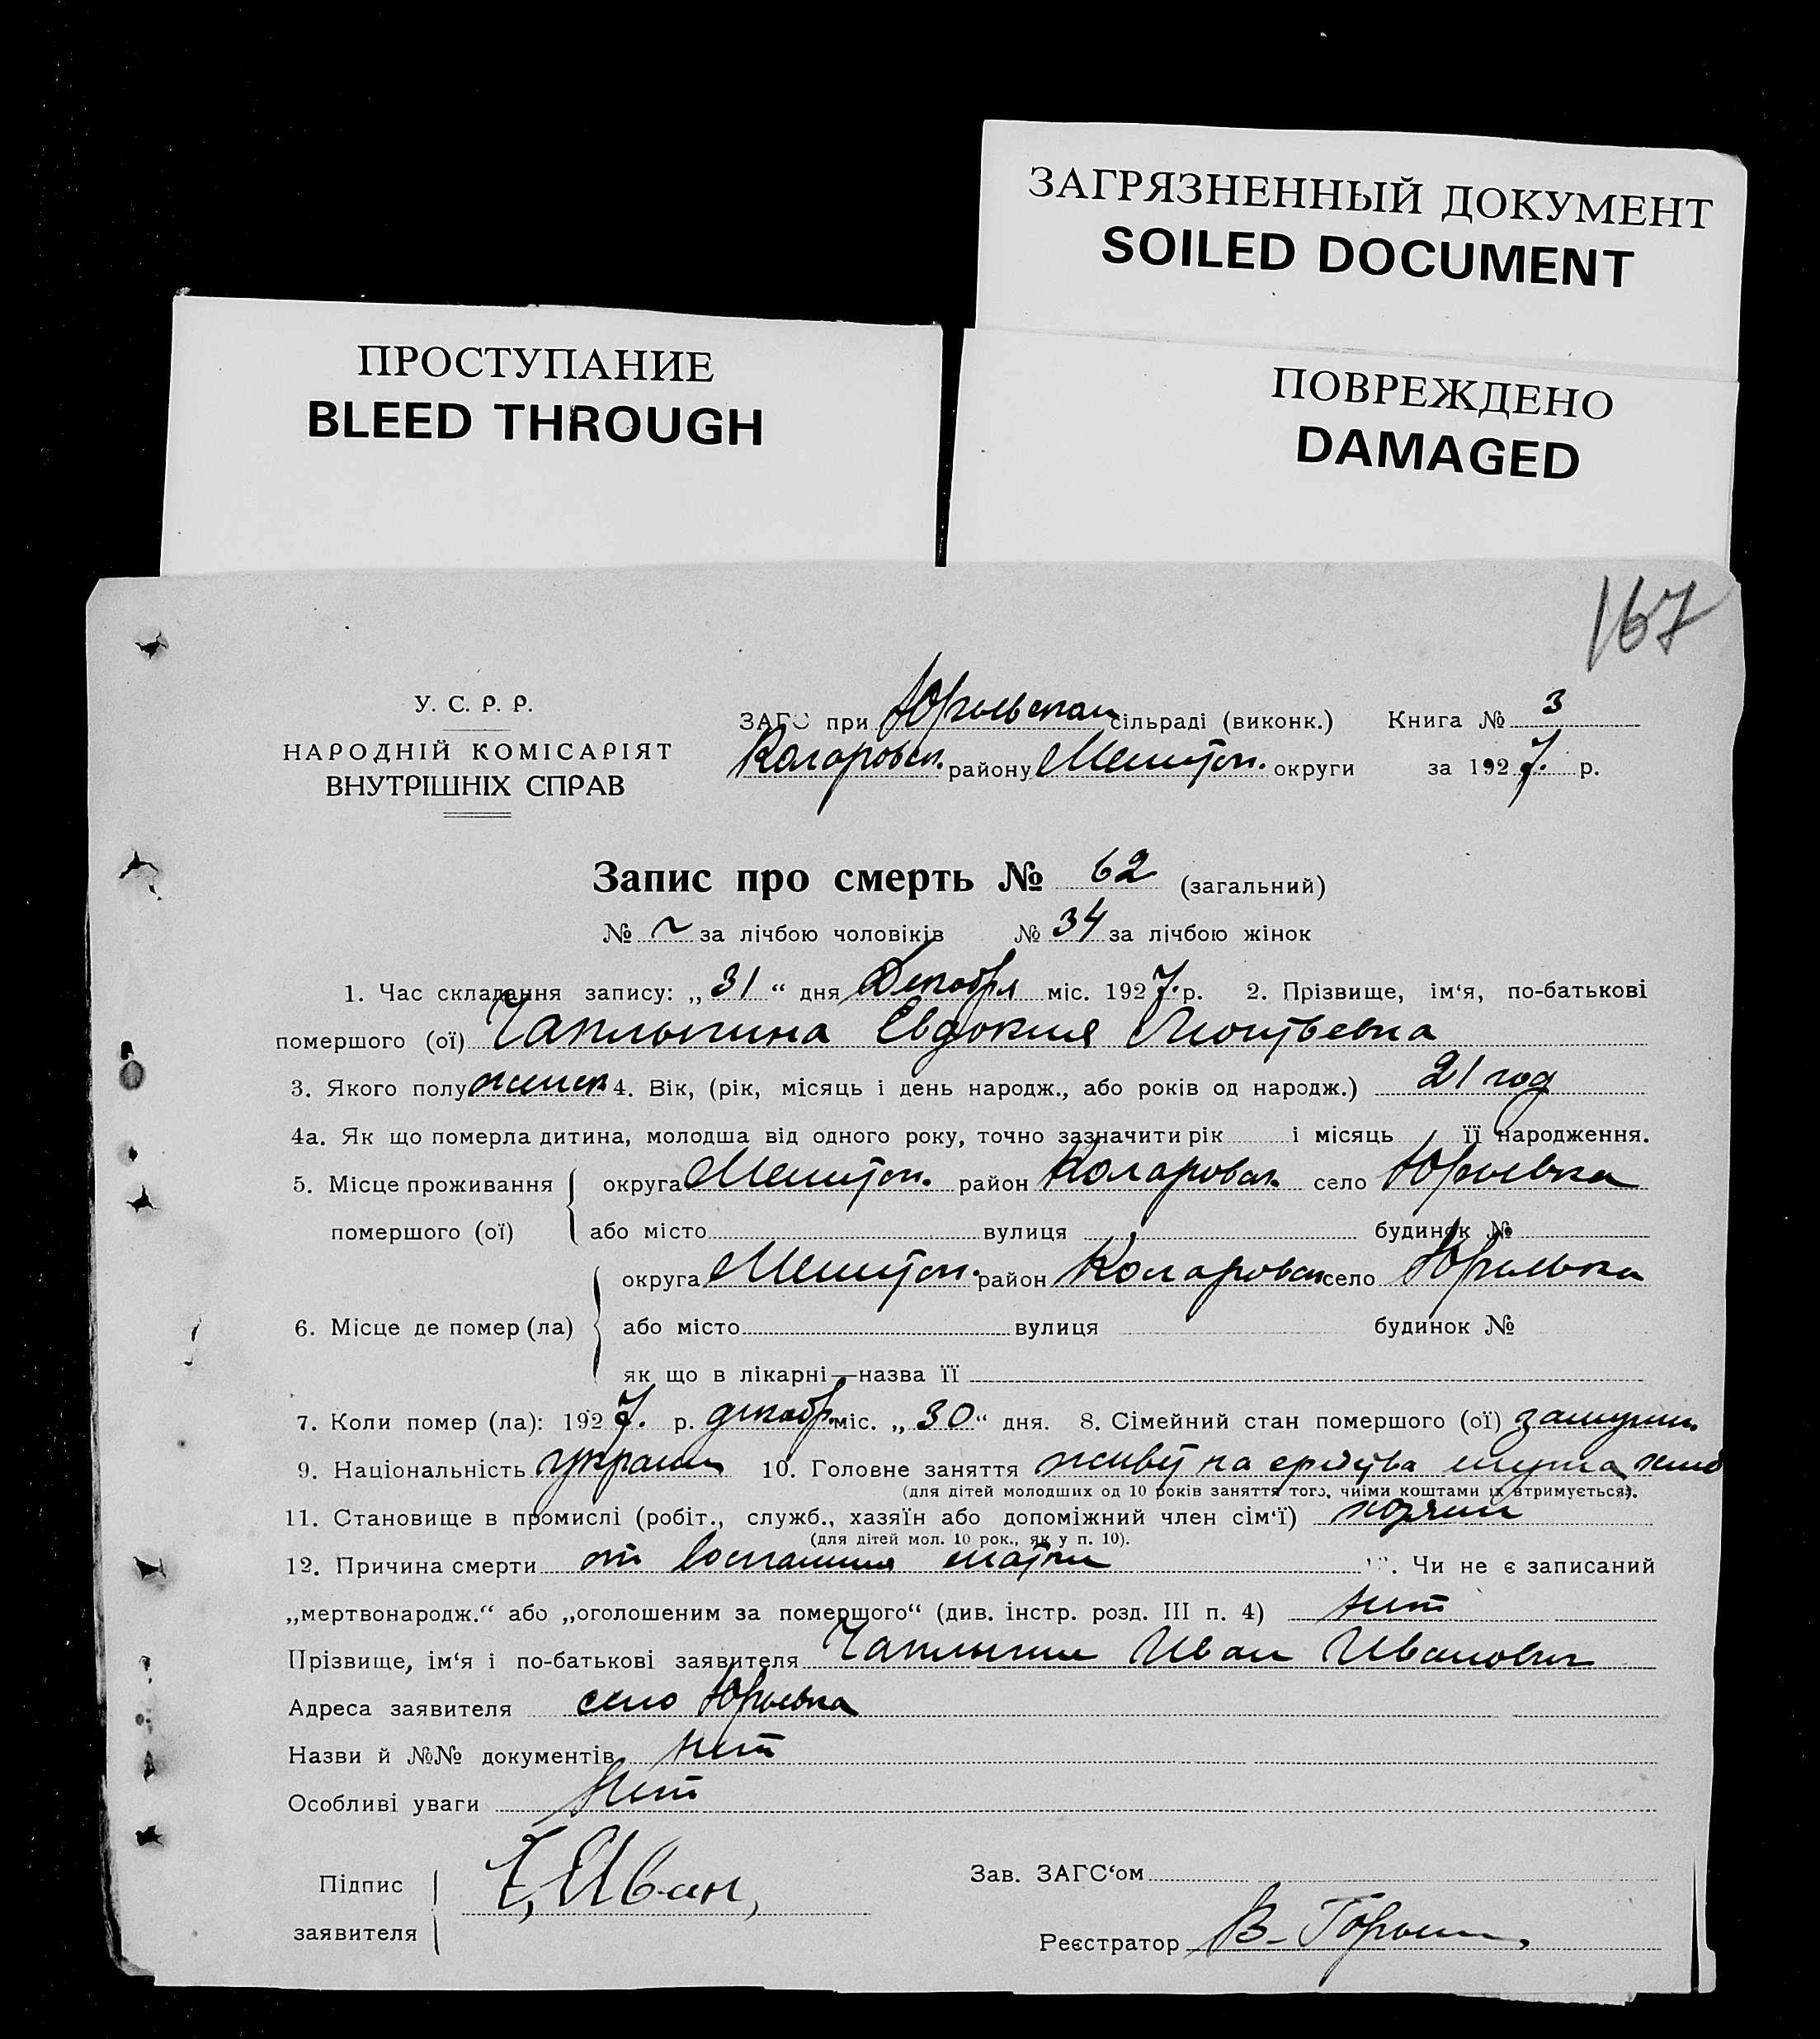 ЗАГРЯЗНЕННЫЙ ДОКУМЕНТ
SOILED DOCUMENT
ПРОСТУПАНИЕ
BLEED THROUGH
ПОВРЕЖДЕНО
DAMAGED
167
У. С. Р. Р.
НАРОДНІЙ КОМІСАРІЯТ
ВНУТРІШНІХ СПРАВ
ЗАГС при Юрьевском сільраді (виконк.) Книга № 3
Коларовск. району Мелитоп. округи за 1927. р.
Запис про смерть № 62 (загальний)
№ ~ за лічбою чоловіків № 34 за лічбою жінок
1. Час складання запису: „31“ дня Декабря міс. 1927. р. 2. Прізвище, ім'я, по-батькові
помершого (ої) Чаплыгина Евдокия
3. Якого полу женск 4. Вік, (рік, місяць і день народж., або років од народж.) 21 год
4а. Як що померла дитина, молодша від одного року, точно зазначити рік і місяць її народження.
5. Місце проживання округа Мелитоп. район Коларовск. село Юрьевка
помершого (ої) або місто вулиця будинок №
округа Мелитоп. район Коларовск село Юрьевка
6. Місце де помер (ла) або місто вулиця будинок №
як що в лікарні—назва її
7. Коли помер (ла): 1927. р. декабр. міс. „30“ дня. 8. Сімейний стан помершого (ої) замужн.
9. Національність украин 10. Головне заняття на средства мужа
(для дітей молодших од 10 років заняття того, чиїми коштами їх втримується).
11. Становище в промислі (робіт., служб., хазяїн або допоміжний член сім'ї) хозяин
(для дітей мол. 10 рок., як у п. 10).
12. Причина смерти от воспаления матки . Чи не є записаний
„мертвонародж.“ або „оголошеним за померщого“ (див. інстр. розд. III п. 4) нет
Прізвище, ім'я і по-батькові заявителя Чаплыгин Иван Иванович
Адреса заявителя село Юрьевка
Назви й №№ документів нет
Особливі уваги Нет
Підпис заявителя Ч, Иван,
Зав. ЗАГС'ом
Реєстратор В-